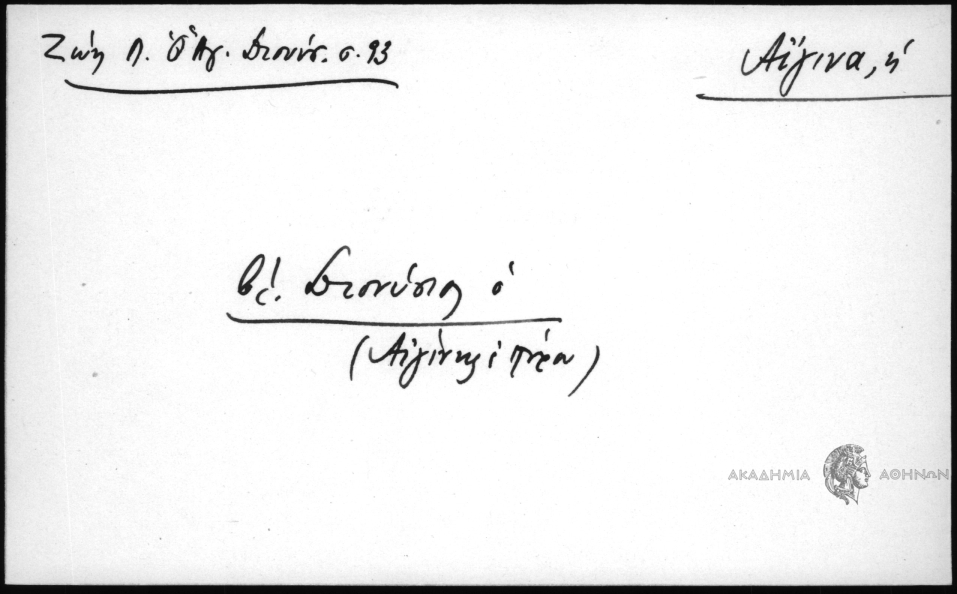 Ζώη Λ. Ὁ Ἅγ. Διονύσ. σ. 93
Αἴγινα, ἡ
βλ. Διονύσιος ὁ
(Αἰγίνης
ΑΚΑΔΗΜΙΑ ΑΘΗΝΩΝ